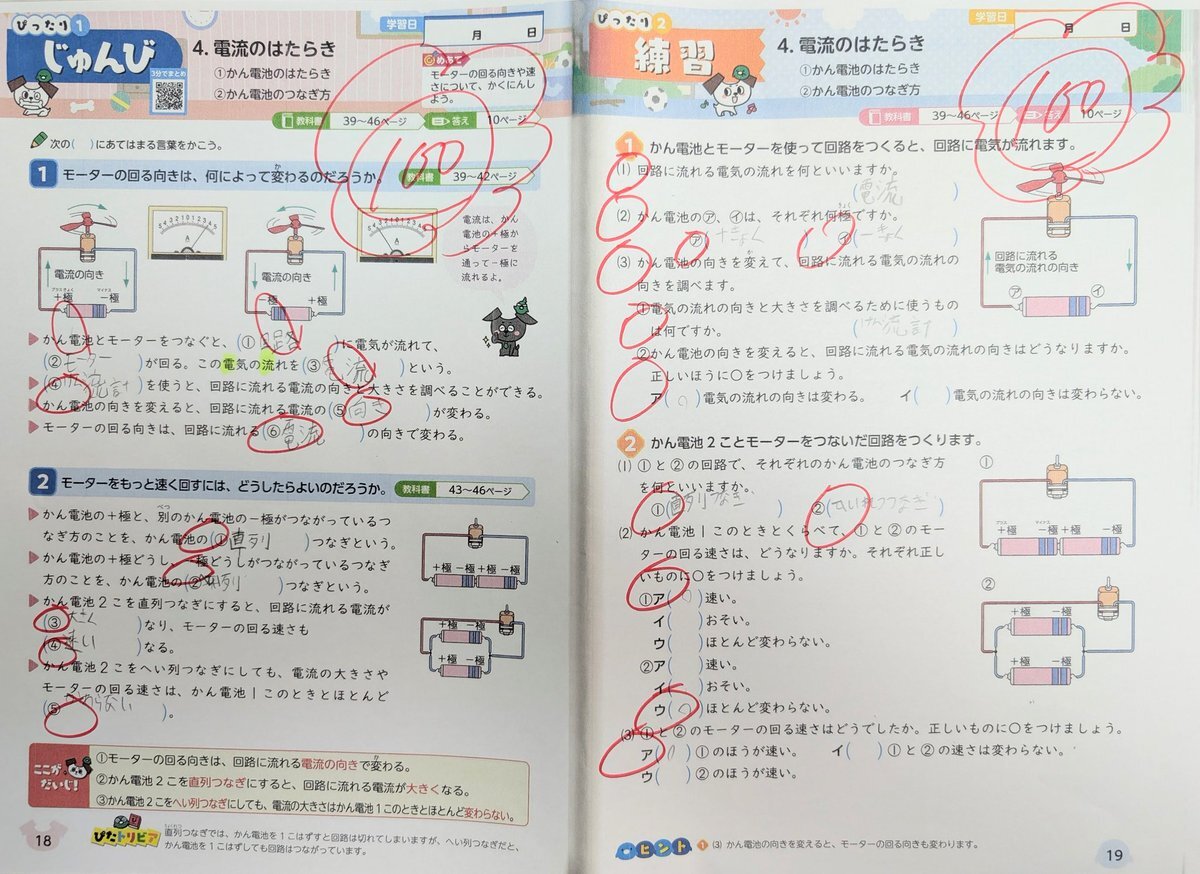 ぴったり1
じゅんび
3分でまとめ
4. 電流のはたらき
①かん電池のはたらき
②かん電池のつなぎ方
学習日
月 日
めあて
モーターの回る向きや速
さについて、かくにんし
よう。
教科書 39〜46ページ 答え 10ページ
100
次の( )にあてはまる言葉をかこう。
1 モーターの回る向きは、何によって変わるのだろうか。 教科書 39〜42ページ
電流の向き
プラスきょく マイナス
+極 -極
5 4 3 2 1 0 1 2 3 4 5
A
電流の向き
-極 +極
5 4 3 2 1 0 1 2 3 4 5
A
電流は、かん
電池の+極か
らモーターを
通って-極に
流れるよ。
かん電池とモーターをつなぐと、(① 回路 )に電気が流れて、
(② モーター )が回る。この電気の流れを(③ 電流 )という。
(④ けん流計 )を使うと、回路に流れる電流の向きと大きさを調べることができる。
かん電池の向きを変えると、回路に流れる電流の(⑤ 向き )が変わる。
モーターの回る向きは、回路に流れる(⑥ 電流 )の向きで変わる。
2 モーターをもっと速く回すには、どうしたらよいのだろうか。 教科書 43〜46ページ
かん電池の+極と、別のかん電池の-極がつながっているつ
なぎ方のことを、かん電池の(① 直列 )つなぎという。
かん電池の+極どうし、-極どうしがつながっているつなぎ
方のことを、かん電池の(② 列 )つなぎという。
かん電池2こを直列つなぎにすると、回路に流れる電流が
(③ 大きく )なり、モーターの回る速さも
(④ 速い )なる。
かん電池2こをへい列つなぎにしても、電流の大きさや
モーターの回る速さは、かん電池1このときとほとんど
(⑤ かわらない )。
+極 -極 +極 -極
+極 -極
+極 -極
ここが
だいじ!
①モーターの回る向きは、回路に流れる電流の向きで変わる。
②かん電池2こを直列つなぎにすると、回路に流れる電流が大きくなる。
③かん電池2こをへい列つなぎにしても、電流の大きさはかん電池1このときとほとんど変わらない。
18
ぴたトリビア
直列つなぎでは、かん電池を1こはずすと回路は切れてしまいますが、へい列つなぎだと、
かん電池を1こはずしても回路はつながっています。
ぴったり2
練習
4. 電流のはたらき
①かん電池のはたらき
②かん電池のつなぎ方
学習日
月 日
教科書 39〜46ページ 答え 10ページ
100
1 かん電池とモーターを使って回路をつくると、回路に電気が流れます。
(1) 回路に流れる電気の流れを何といいますか。
( 電流 )
(2) かん電池の㋐、㋑は、それぞれ何極ですか。
㋐( +きょく ) ㋑( -きょく )
(3) かん電池の向きを変えて、回路に流れる電気の流れの
向きを調べます。
①電気の流れの向きと大きさを調べるために使うもの
は何ですか。 ( けん流計 )
②かん電池の向きを変えると、回路に流れる電気の流れの向きはどうなりますか。
正しいほうに○をつけましょう。
ア( ○ )電気の流れの向きは変わる。 イ( )電気の流れの向きは変わらない。
回路に流れる
電気の流れの向き
㋐ ㋑
2 かん電池2ことモーターをつないだ回路をつくります。
(1) ①と②の回路で、それぞれのかん電池のつなぎ方
を何といいますか。
①( 直列つなぎ ) ②( へい列つなぎ )
(2) かん電池1このときとくらべて、①と②のモー
ターの回る速さは、どうなりますか。それぞれ正し
いものに○をつけましょう。
①ア( ○ )速い。
イ( )おそい。
ウ( )ほとんど変わらない。
②ア( )速い。
イ( )おそい。
ウ( ○ )ほとんど変わらない。
(3) ①と②のモーターの回る速さはどうでしたか。正しいものに○をつけましょう。
ア( ○ )①のほうが速い。 イ( )①と②の速さは変わらない。
ウ( )②のほうが速い。
①
プラス マイナス
+極 -極 +極 -極
②
+極 -極
+極 -極
ヒント
1 (3) かん電池の向きを変えると、モーターの回る向きも変わります。
19